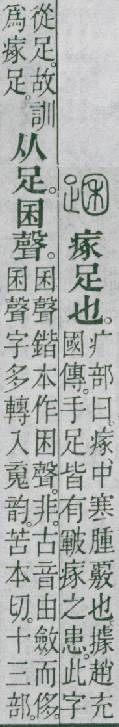 瘃足也。
疒部曰。瘃、中寒腫覈也。據趙充
國傳。手足皆有皸瘃之患。此字
從足。故訓
爲瘃足。
从足。囷聲。
囷聲鍇本作困聲。非。古音由斂而侈
囷聲字多轉入䰟韵。苦本切。十三部。